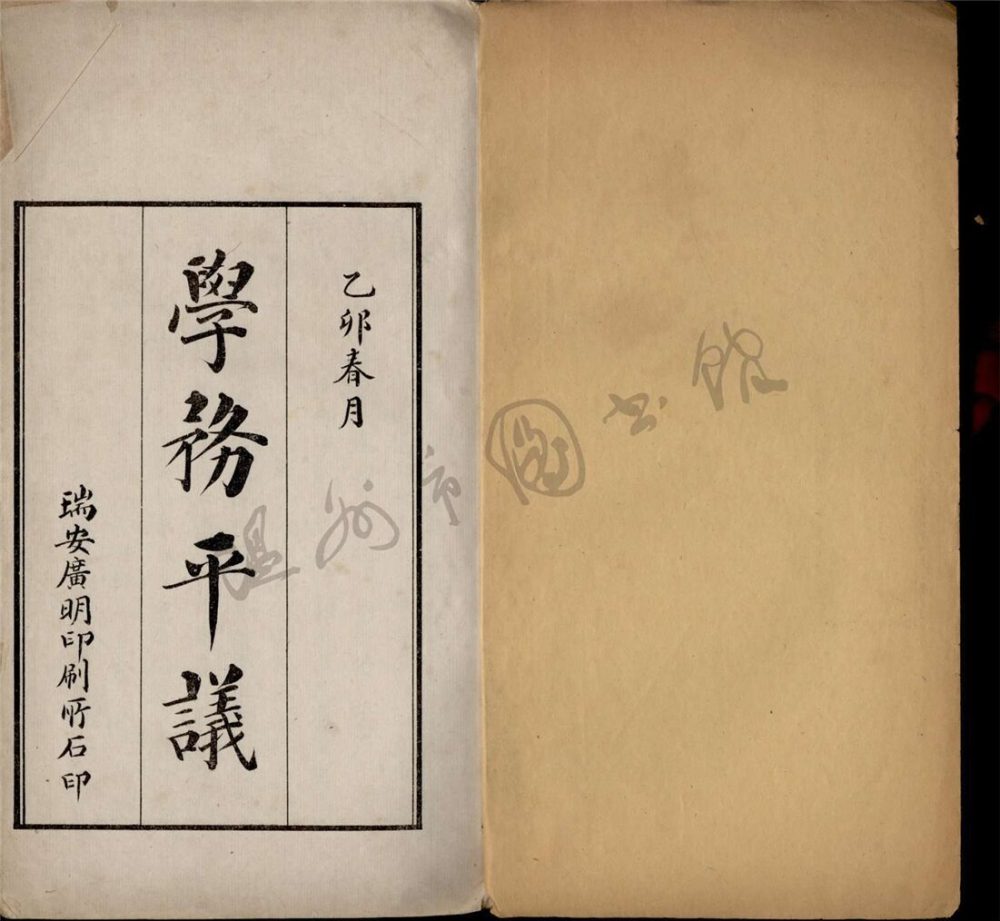 乙卯春月
學務平議
瑞安廣明印刷所石印
温州市圖书馆